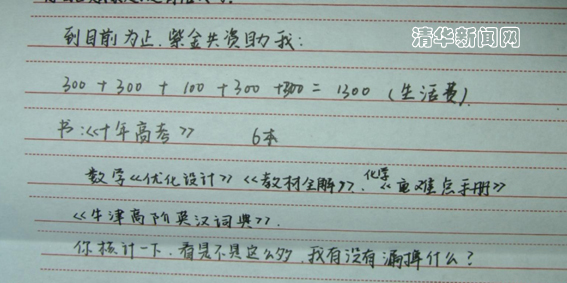 清华新闻网
到目前为止,紫金共资助我:
300 + 300 + 100 + 300 + 300 = 1300 (生活费)
书:《十年高考》 6本
数学《优化设计》《教材全解》、化学《重难点手册》
《牛津高阶英汉词典》.
你核计一下,看是不是这么多,我有没有漏掉什么?